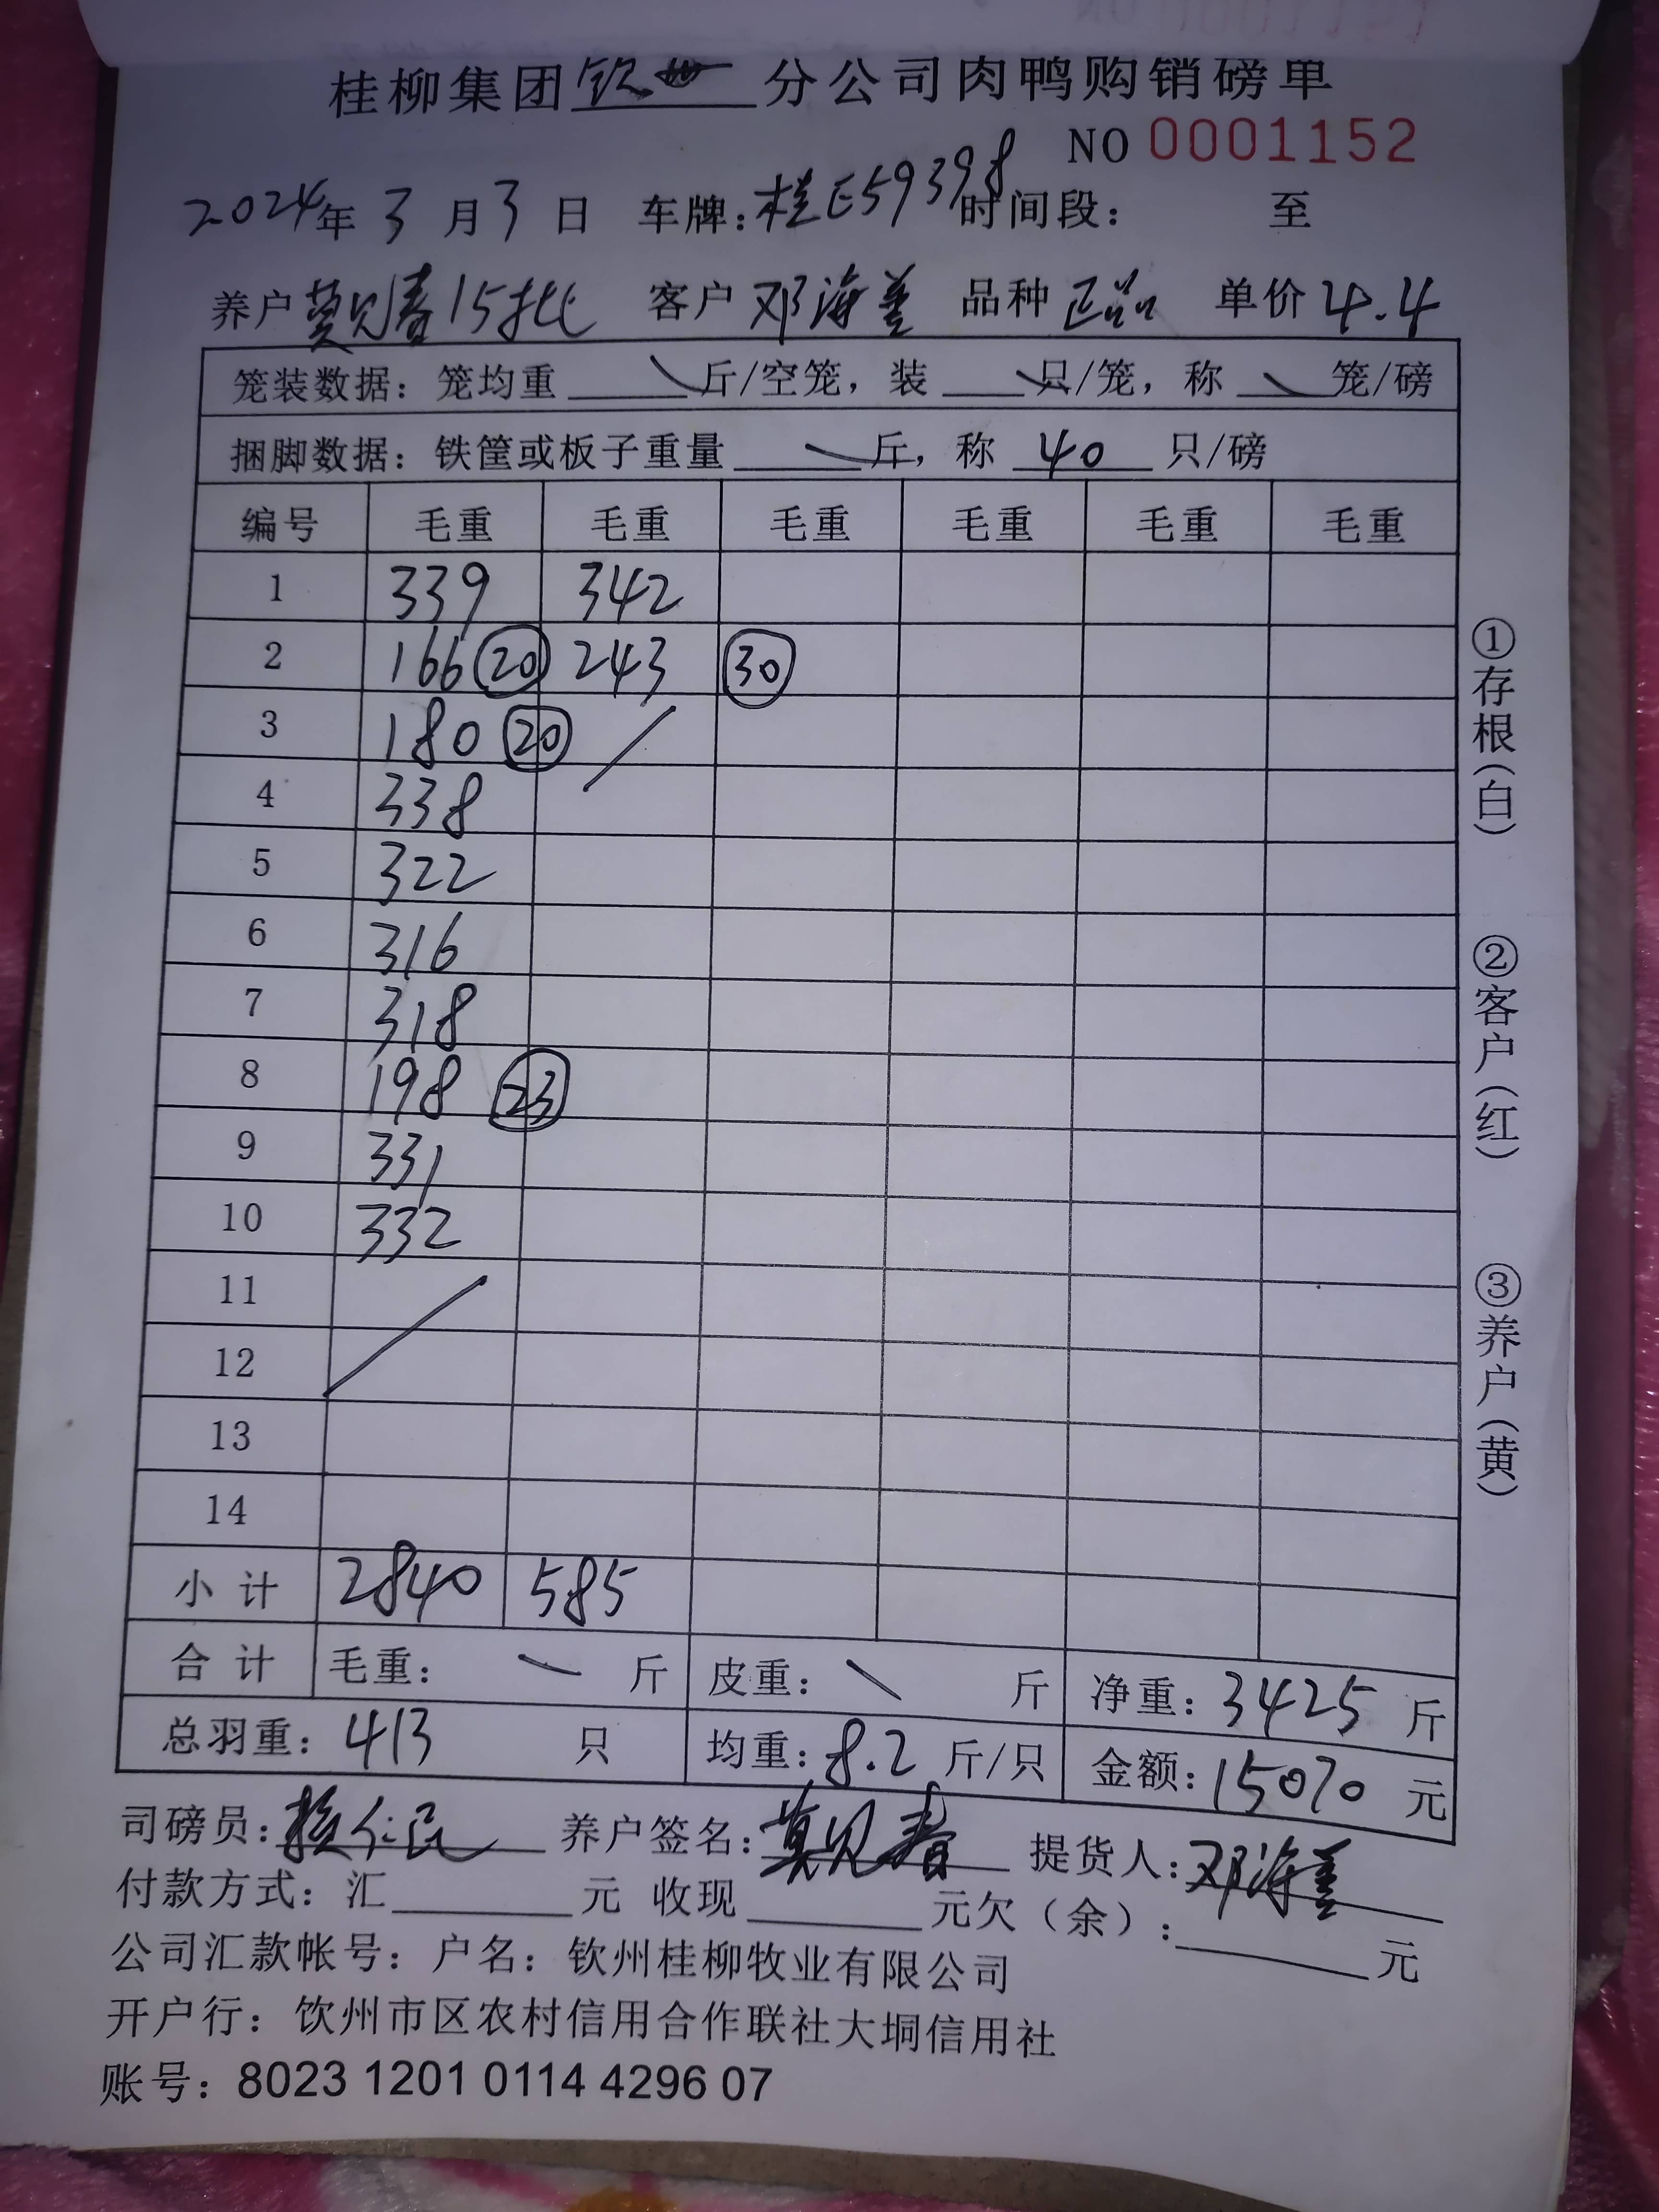 桂柳集团钦州分公司肉鸭购销磅单
NO 0001152
2024年 3 月 3 日 车牌:桂E59398 时间段: 至
养户 莫见春15批 客户 邓海善 品种 正品 单价 4.4
笼装数据: 笼均重 \ 斤/空笼, 装 \ 只/笼, 称 \ 笼/磅
捆脚数据: 铁筐或板子重量 \ 斤, 称 40 只/磅
编号 毛重 毛重 毛重 毛重 毛重 毛重
1 339 342
2 166 ⑳ 243 ㉚
3 180 ⑳ /
4 338
5 322
6 316
7 318
8 198 ㉓
9 331
10 332
11 /
12
13
14
小计 2840 585
合计 毛重: \ 斤 皮重: \ 斤 净重: 3425 斤
总羽重: 413 只 均重: 8.2 斤/只 金额: 15070 元
司磅员: 养户签名: 莫见春 提货人: 邓海善
付款方式: 汇 元 收现 元欠(余): 元
公司汇款帐号: 户名: 钦州桂柳牧业有限公司
开户行: 钦州市区农村信用合作联社大垌信用社
账号: 8023 1201 0114 4296 07
①存根(白)
②客户(红)
③养户(黄)